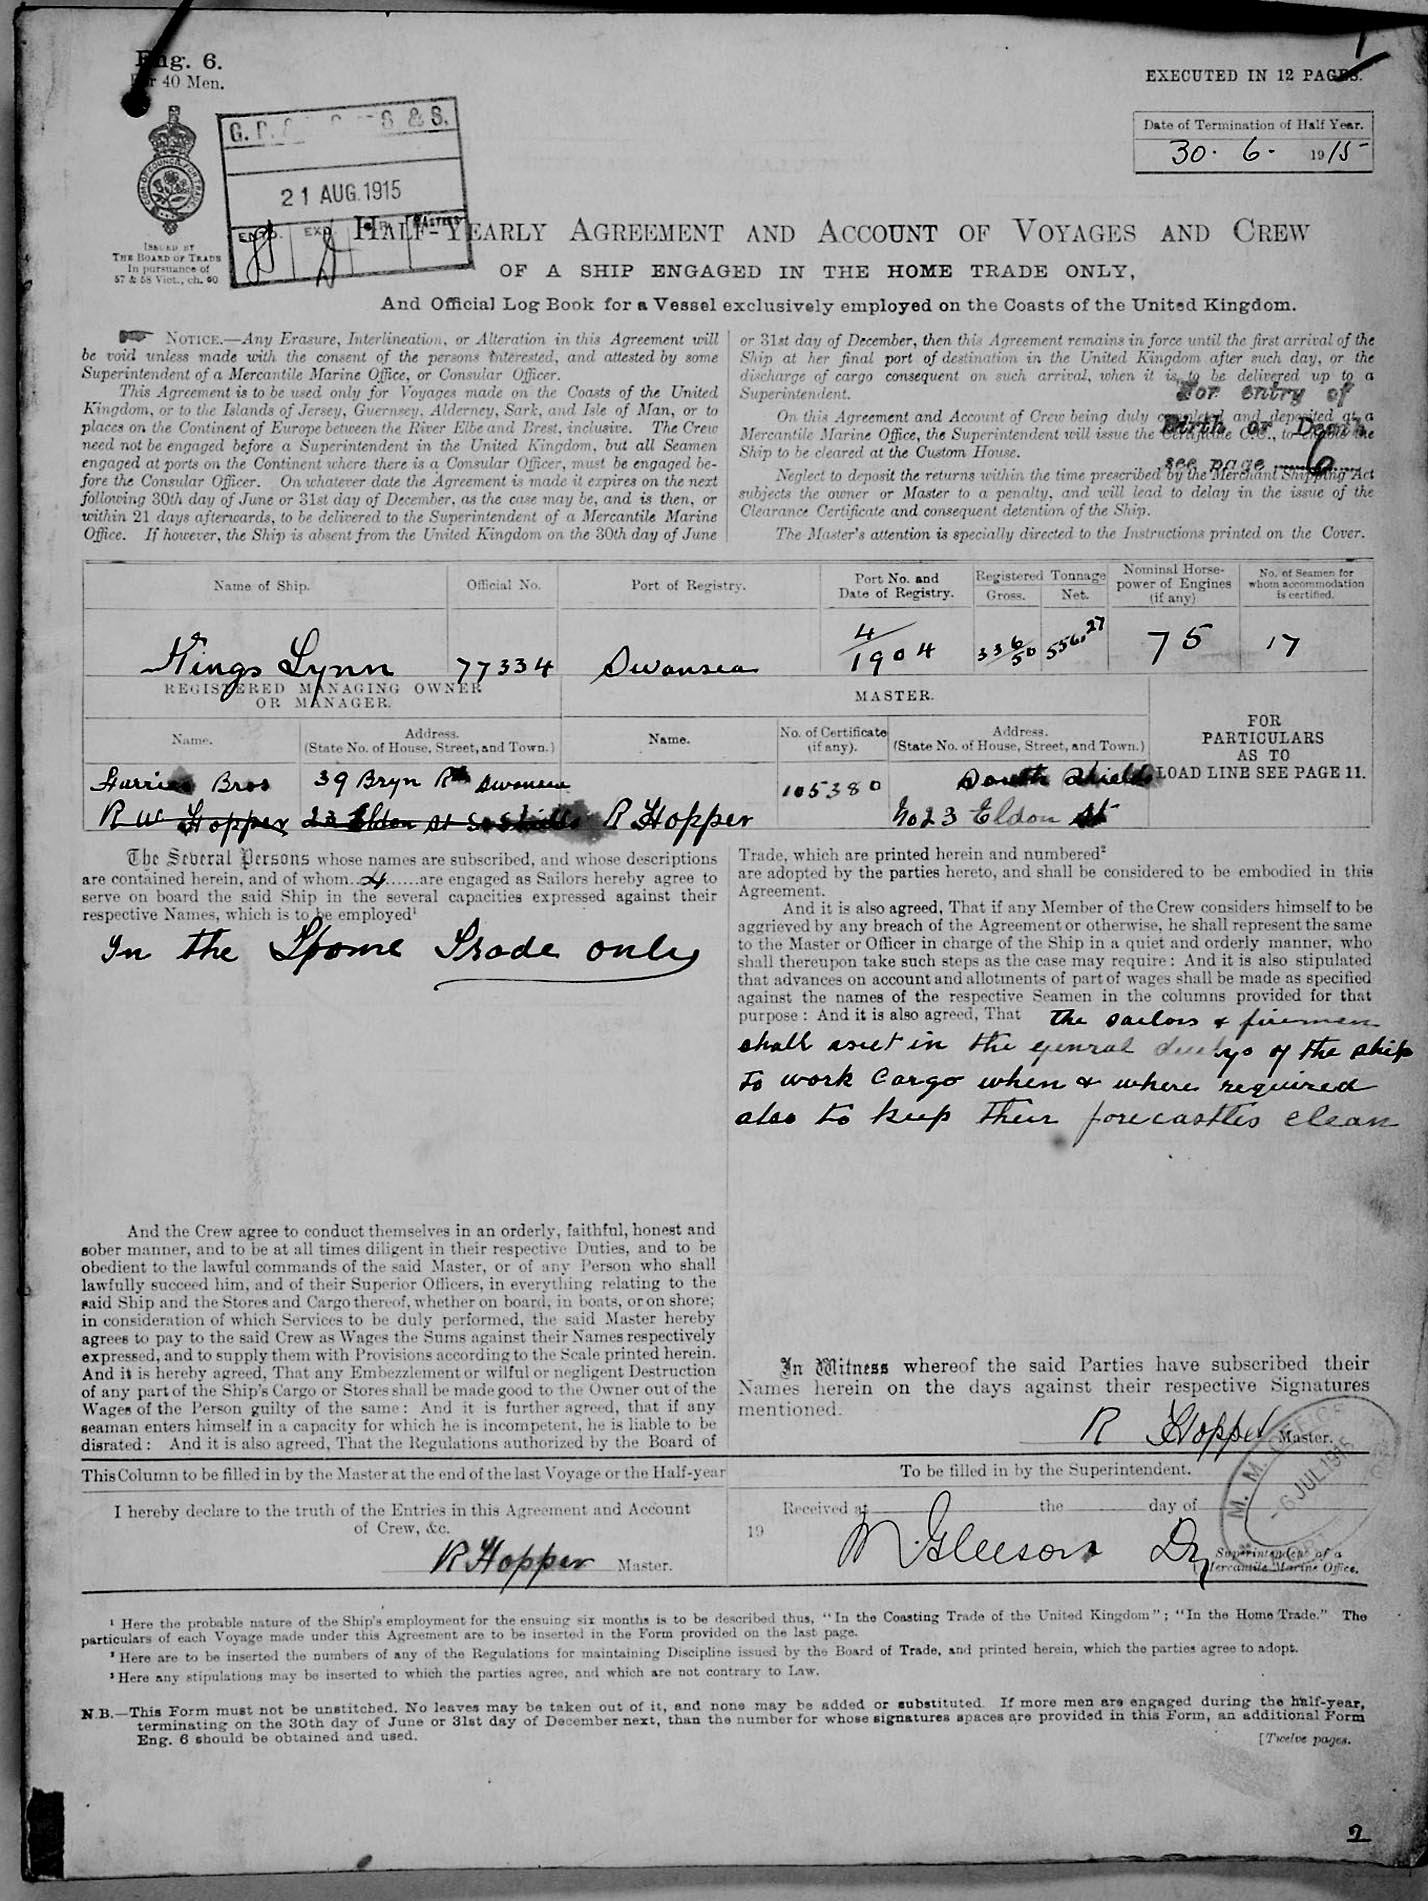 Eng. 6.
For 40 Men.
EXECUTED IN 12 PAGES.
Date of Termination of Half Year.
30. 6. 1915
& S.
21 AUG. 1915
ISSUED BY
THE BOARD OF TRADE
In pursuance of
57 & 58 Vict., ch. 60
HALF-YEARLY AGREEMENT AND ACCOUNT OF VOYAGES AND CREW
OF A SHIP ENGAGED IN THE HOME TRADE ONLY,
And Official Log Book for a Vessel exclusively employed on the Coasts of the United Kingdom.
NOTICE.—Any Erasure, Interlineation, or Alteration in this Agreement will
be void unless made with the consent of the persons interested, and attested by some
Superintendent of a Mercantile Marine Office, or Consular Officer.
This Agreement is to be used only for Voyages made on the Coasts of the United
Kingdom, or to the Islands of Jersey, Guernsey, Alderney, Sark, and Isle of Man, or to
places on the Continent of Europe between the River Elbe and Brest, inclusive. The Crew
need not be engaged before a Superintendent in the United Kingdom, but all Seamen
engaged at ports on the Continent where there is a Consular Officer, must be engaged be-
fore the Consular Officer. On whatever date the Agreement is made it expires on the next
following 30th day of June or 31st day of December, as the case may be, and is then, or
within 21 days afterwards, to be delivered to the Superintendent of a Mercantile Marine
Office. If however, the Ship is absent from the United Kingdom on the 30th day of June
or 31st day of December, then this Agreement remains in force until the first arrival of the
Ship at her final port of destination in the United Kingdom after such day, or the
discharge of cargo consequent on such arrival, when it is to be delivered up to a
Superintendent.
For entry of
On this Agreement and Account of Crew being duly completed and deposited at a
Birth or Death
Mercantile Marine Office, the Superintendent will issue the Certificate C.C., to enable the
Ship to be cleared at the Custom House.
see page 6
Neglect to deposit the returns within the time prescribed by the Merchant Shipping Act
subjects the owner or Master to a penalty, and will lead to delay in the issue of the
Clearance Certificate and consequent detention of the Ship.
The Master's attention is specially directed to the Instructions printed on the Cover.
Name of Ship. Official No. Port of Registry. Port No. and Date of Registry. Registered Tonnage Gross. Net. Nominal Horse-power of Engines (if any) No. of Seamen for whom accommodation is certified.
Kings Lynn 77334 Swansea 4/1904 336/50 556.27 75 17
REGISTERED MANAGING OWNER OR MANAGER. MASTER.
Name. Address. (State No. of House, Street, and Town.) Name. No. of Certificate (if any). Address. (State No. of House, Street, and Town.)
FOR
PARTICULARS
AS TO
LOAD LINE SEE PAGE 11.
Harries Bros 39 Bryn Rd Swansea 105380 South Shields
R W Hopper 23 Eldon St So Shields R Hopper No 23 Eldon St
The Several Persons whose names are subscribed, and whose descriptions
are contained herein, and of whom 4 are engaged as Sailors hereby agree to
serve on board the said Ship in the several capacities expressed against their
respective Names, which is to be employed¹
In the Home Trade only
And the Crew agree to conduct themselves in an orderly, faithful, honest and
sober manner, and to be at all times diligent in their respective Duties, and to be
obedient to the lawful commands of the said Master, or of any Person who shall
lawfully succeed him, and of their Superior Officers, in everything relating to the
said Ship and the Stores and Cargo thereof, whether on board, in boats, or on shore;
in consideration of which Services to be duly performed, the said Master hereby
agrees to pay to the said Crew as Wages the Sums against their Names respectively
expressed, and to supply them with Provisions according to the Scale printed herein.
And it is hereby agreed, That any Embezzlement or wilful or negligent Destruction
of any part of the Ship's Cargo or Stores shall be made good to the Owner out of the
Wages of the Person guilty of the same: And it is further agreed, that if any
seaman enters himself in a capacity for which he is incompetent, he is liable to be
disrated: And it is also agreed, That the Regulations authorized by the Board of
Trade, which are printed herein and numbered²
are adopted by the parties hereto, and shall be considered to be embodied in this
Agreement.
And it is also agreed, That if any Member of the Crew considers himself to be
aggrieved by any breach of the Agreement or otherwise, he shall represent the same
to the Master or Officer in charge of the Ship in a quiet and orderly manner, who
shall thereupon take such steps as the case may require: And it is also stipulated
that advances on account and allotments of part of wages shall be made as specified
against the names of the respective Seamen in the columns provided for that
purpose: And it is also agreed, That the sailors & firemen
shall assist in the genral dutys of the ship
to work cargo when & where required
also to keep their forecastles clean
In Witness whereof the said Parties have subscribed their
Names herein on the days against their respective Signatures
mentioned.
R Hopper Master.
This Column to be filled in by the Master at the end of the last Voyage or the Half-year
I hereby declare to the truth of the Entries in this Agreement and Account
of Crew, &c.
R Hopper Master.
To be filled in by the Superintendent.
Received at the day of
19
M Gleeson Dy
Superintendent of a
Mercantile Marine Office.
M. M. OFFICE
6 JUL 1915
¹ Here the probable nature of the Ship's employment for the ensuing six months is to be described thus, "In the Coasting Trade of the United Kingdom"; "In the Home Trade." The
particulars of each Voyage made under this Agreement are to be inserted in the Form provided on the last page.
² Here are to be inserted the numbers of any of the Regulations for maintaining Discipline issued by the Board of Trade, and printed herein, which the parties agree to adopt.
³ Here any stipulations may be inserted to which the parties agree, and which are not contrary to Law.
N.B.—This Form must not be unstitched. No leaves may be taken out of it, and none may be added or substituted. If more men are engaged during the half-year,
terminating on the 30th day of June or 31st day of December next, than the number for whose signatures spaces are provided in this Form, an additional Form
Eng. 6 should be obtained and used.
[Twelve pages.